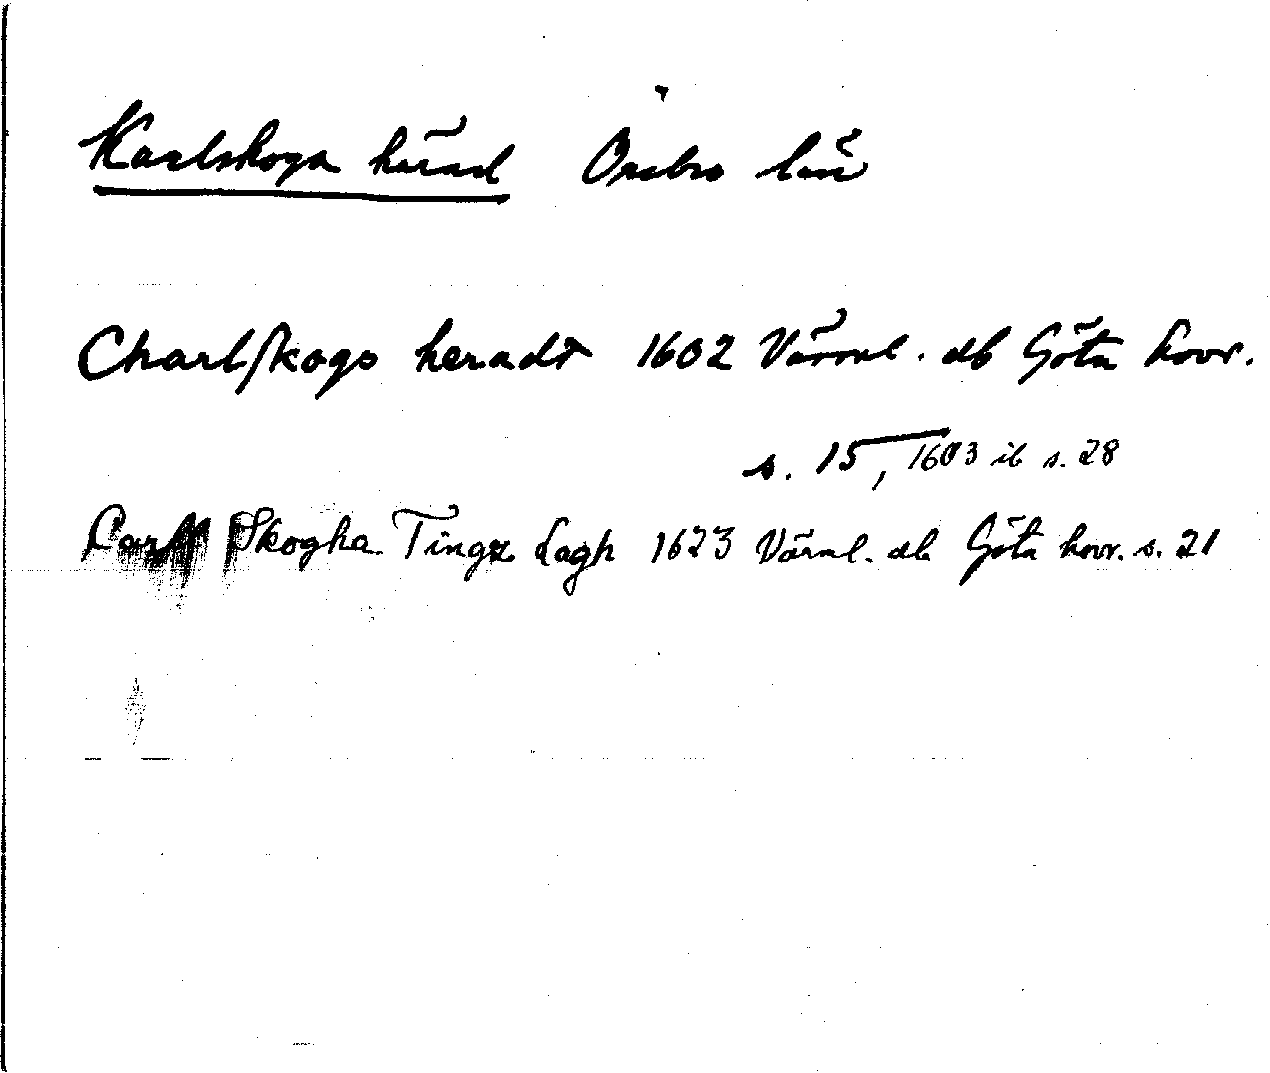 Karlskoga härad Örebro län
Charlſkogs heradt 1602 Värml. db Göta hovr.
s. 15, 1603 ib s. 28
Carll Skogha Tingz Lagh 1623 Värml. db Göta hovr. s. 21